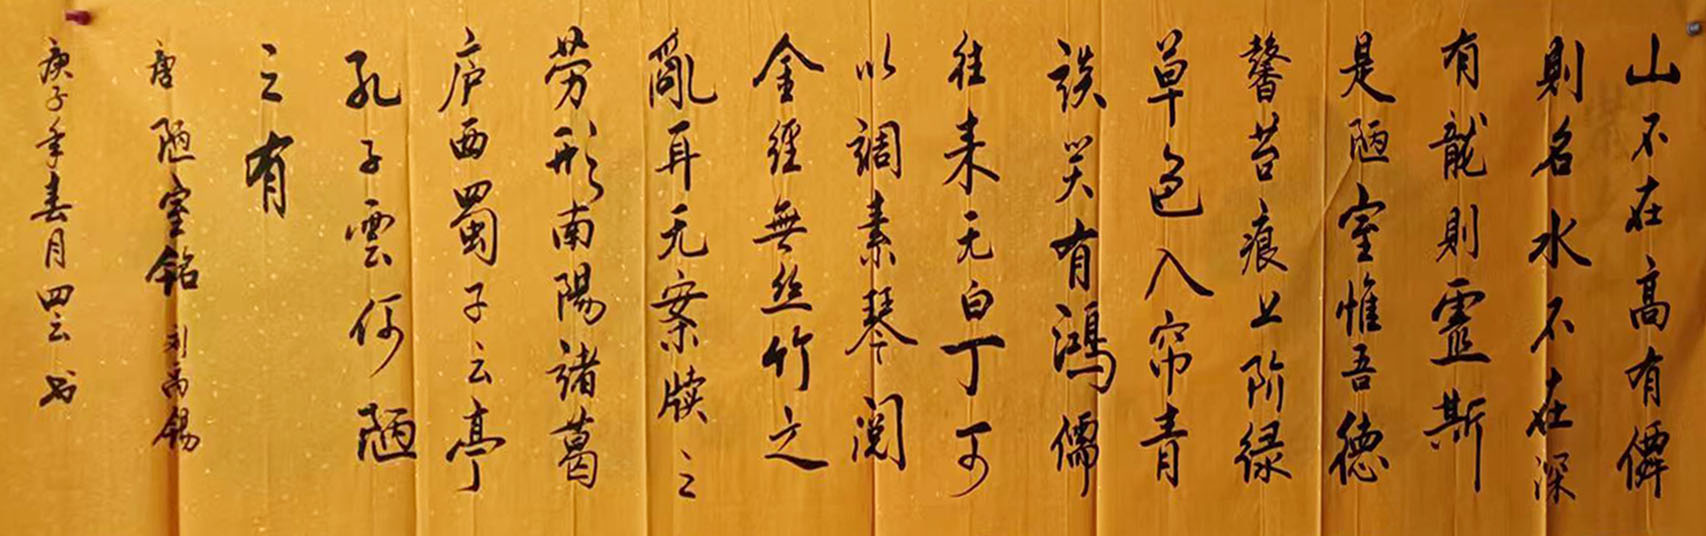 山不在高有僊
則名水不在深
有龍則靈斯
是陋室惟吾德
馨苔痕上阶緑
草色入帘青
談笑有鴻儒
往来无白丁可
以調素琴閲
金經無丝竹之
亂耳无案牍之
劳形南陽諸葛
庐西蜀子云亭
孔子雲何陋
之有
唐 陋室銘 刘禹锡
庚子年春月四云书